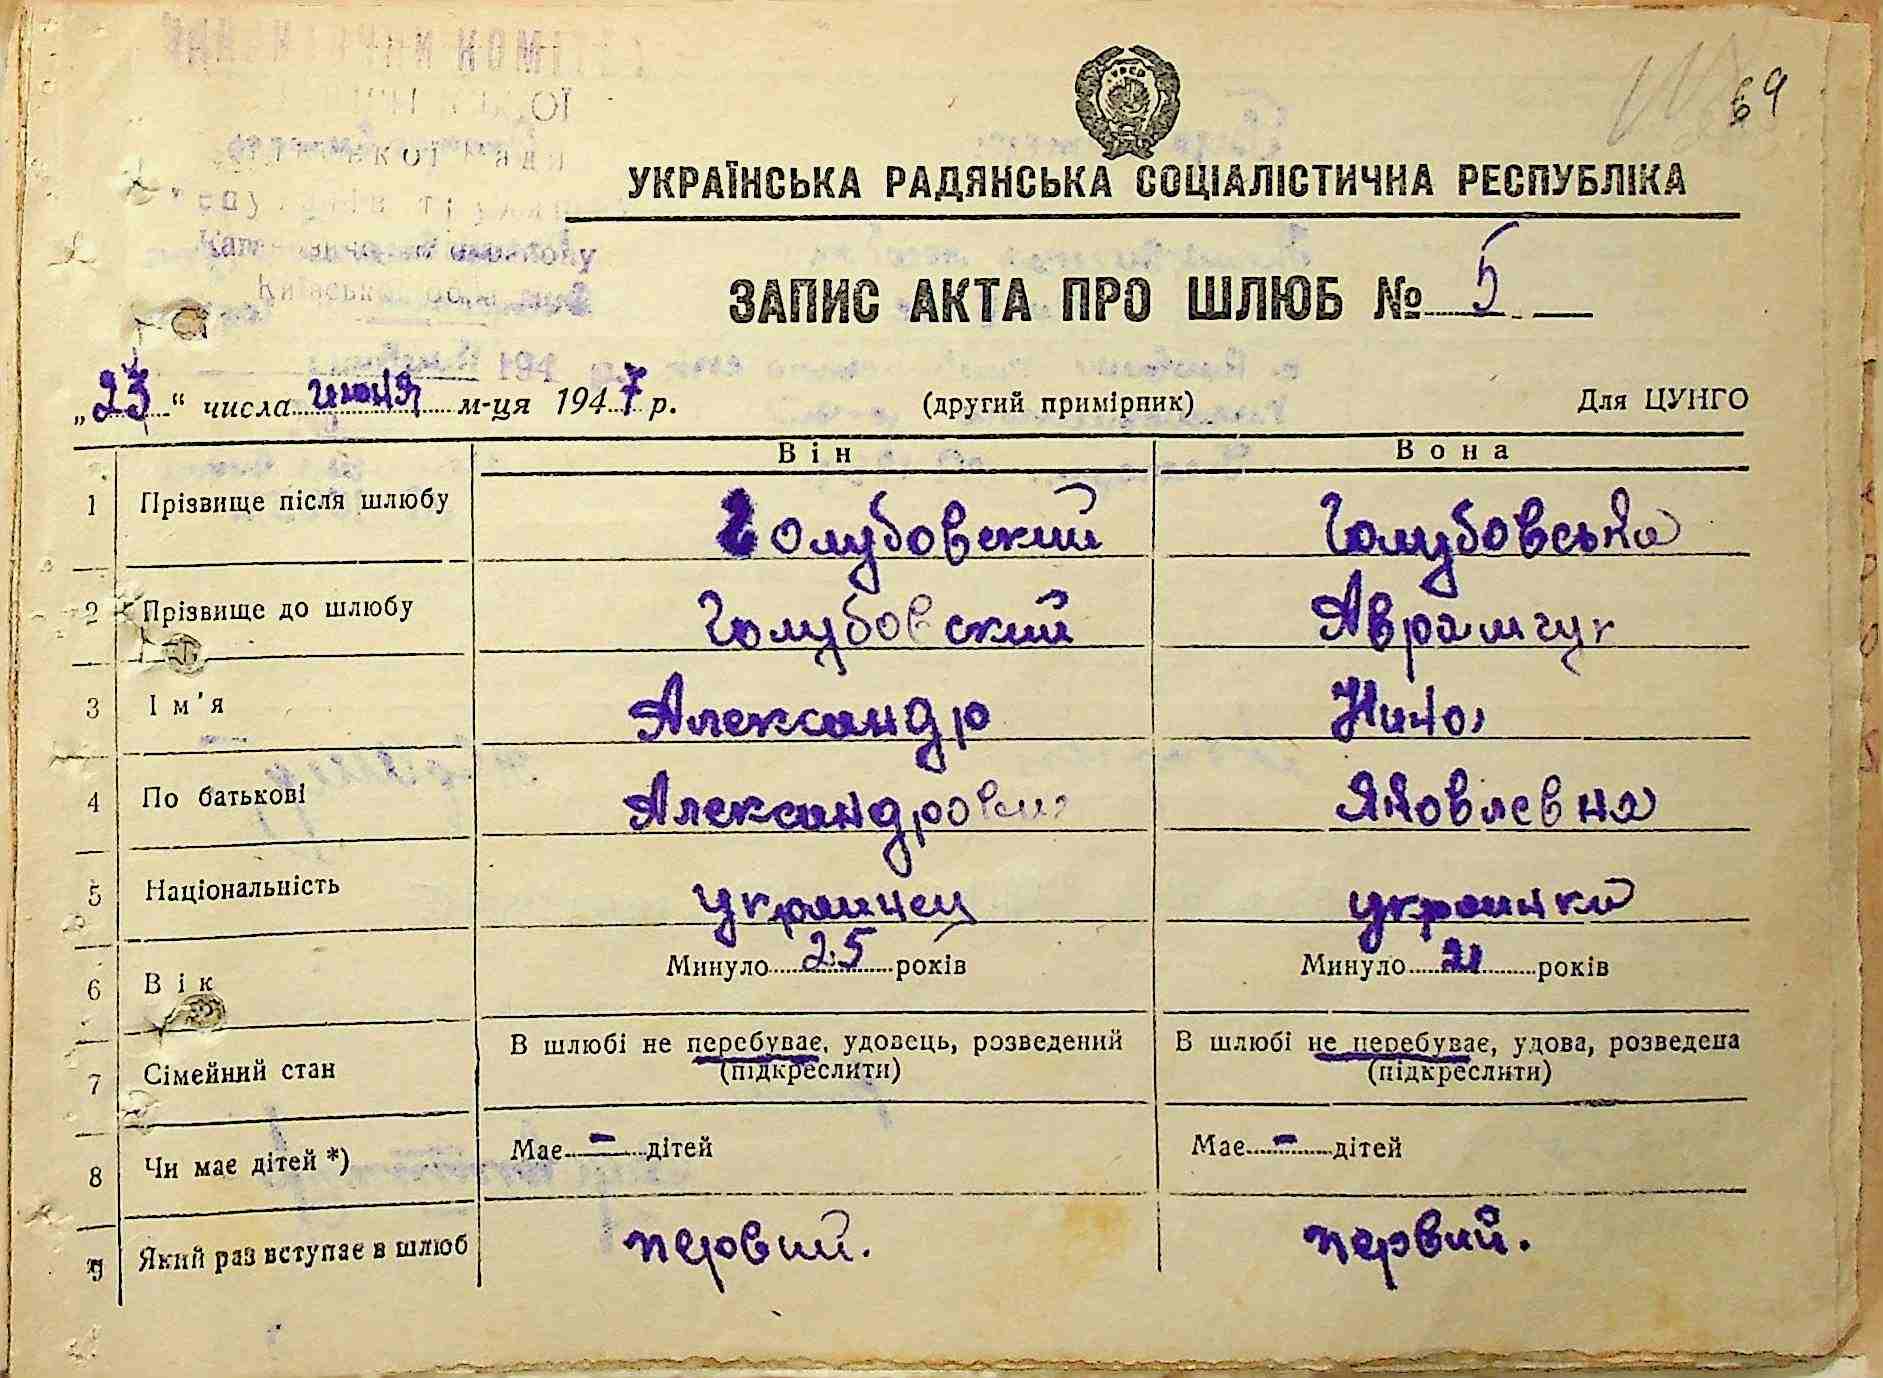 69
УКРАЇНСЬКА РАДЯНСЬКА СОЦІАЛІСТИЧНА РЕСПУБЛІКА
ЗАПИС АКТА ПРО ШЛЮБ № 5
„23“ числа июня м-ця 1947 р. (другий примірник) Для ЦУНГО
Він Вона
1 Прізвище після шлюбу Голубовский Голубовська
2 Прізвище до шлюбу Голубовский Аврамчук
3 Ім'я Александр Нина
4 По батькові Александрович Яковлевна
5 Національність украинец украинка
6 Вік Минуло 25 років Минуло 21 років
7 Сімейний стан В шлюбі не перебуває, удовець, розведений В шлюбі не перебуває, удова, розведена
(підкреслити) (підкреслити)
8 Чи має дітей *) Має - дітей Має - дітей
9 Який раз вступає в шлюб первий. первий.